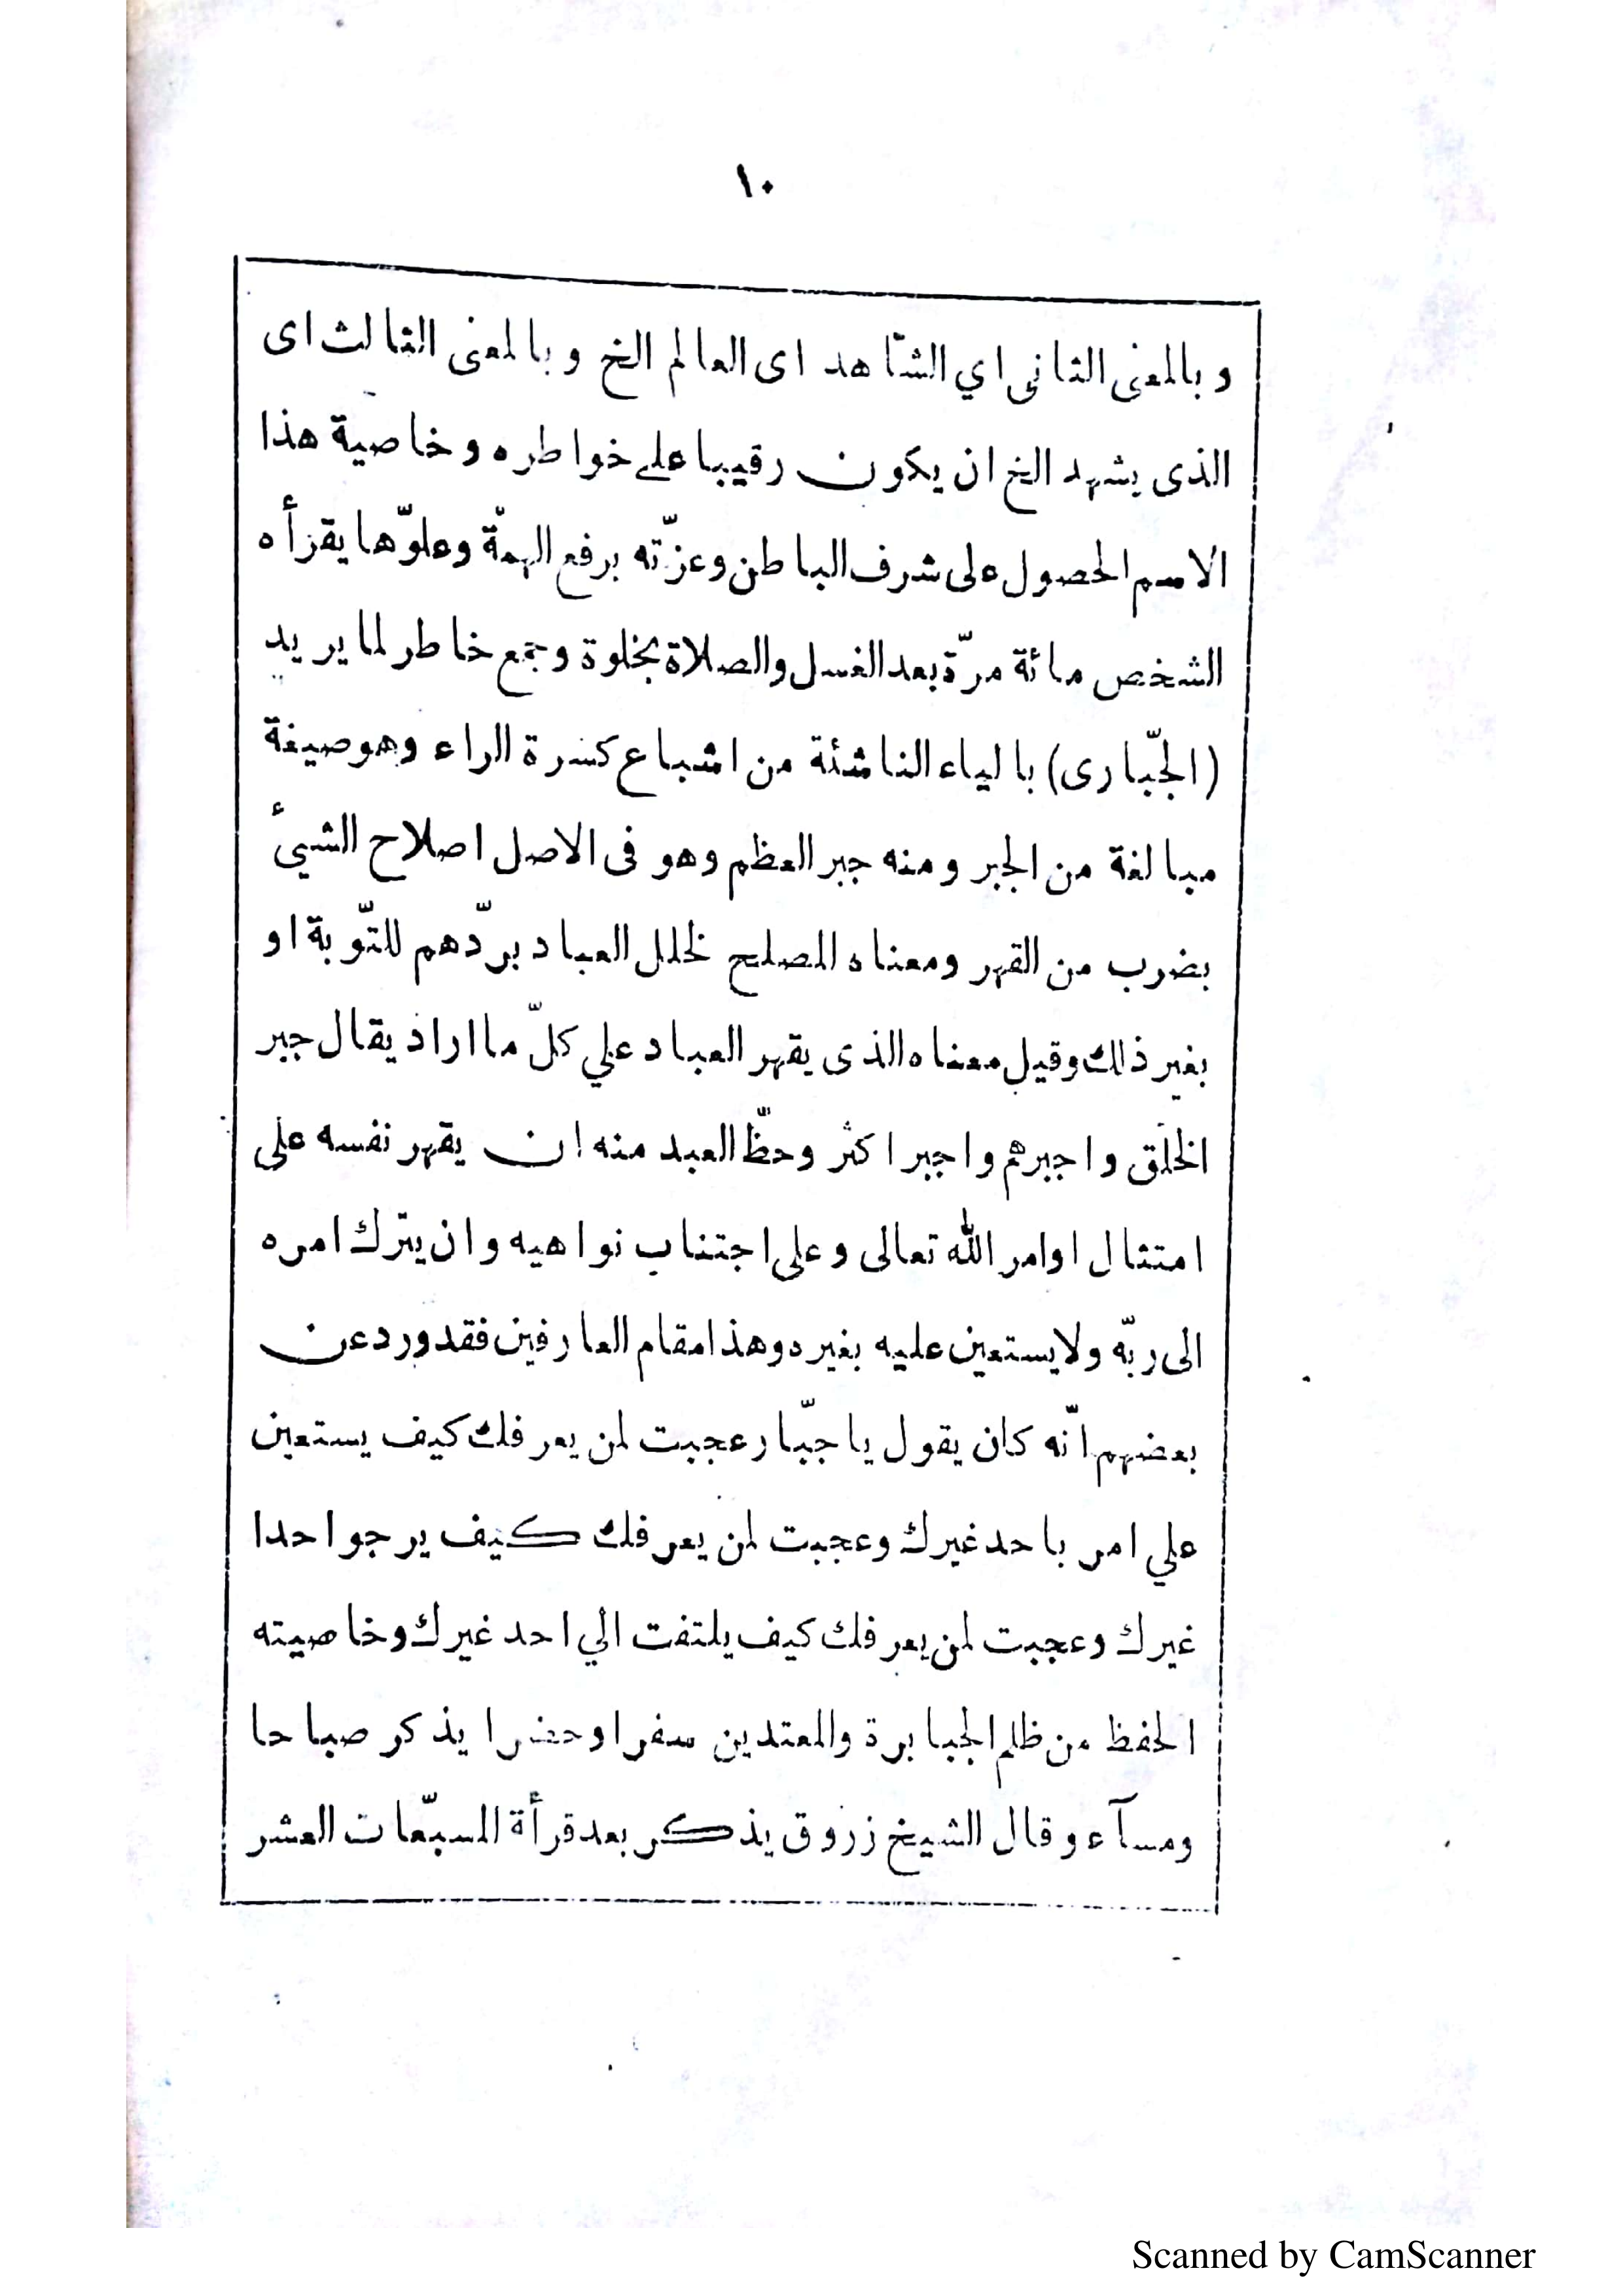 ١٠
و بالمعنى الثانى اي الشّاهد اى العالم الخ و بالمعنى الثالث اى
الذى يشهد الخ ان يكون رقيبا على خواطره و خاصية هذا
الاسم الحصول على شرف الباطن وعزّته برفع الهمّة وعلوّها يقرأه
الشخص مائة مرّة بعد الغسل والصلاة بخلوة وجمع خاطر لما يريد
(الجبّارى) بالياء الناشئة من اشباع كسرة الراء وهو صيغة
مبالغة من الجبر ومنه جبر العظم وهو فى الاصل اصلاح الشيئ
بضرب من القهر ومعناه المصلح لخلل العباد بردّهم للتّوبة او
بغير ذلك وقيل معناه الذى يقهر العباد علي كلّ ما اراد يقال جبر
الخلق واجبرهم واجبر اكثر وحظّ العبد منه ان يقهر نفسه على
امتثال اوامر الله تعالى وعلى اجتناب نواهيه وان يترك امره
الى ربّه ولا يستعين عليه بغيره وهذا مقام العارفين فقد ورد عن
بعضهم انّه كان يقول يا جبّار عجبت لمن يعرفك كيف يستعين
علي امر باحد غيرك وعجبت لمن يعرفك كيف يرجو احدا
غيرك وعجبت لمن يعرفك كيف يلتفت الي احد غيرك وخاصيته
الحفظ من ظلم الجبابرة والمعتدين سفرا وحضرا يذكر صباحا
ومسآء وقال الشيخ زروق يذكر بعد قرأة المسبّعات العشر
Scanned by CamScanner